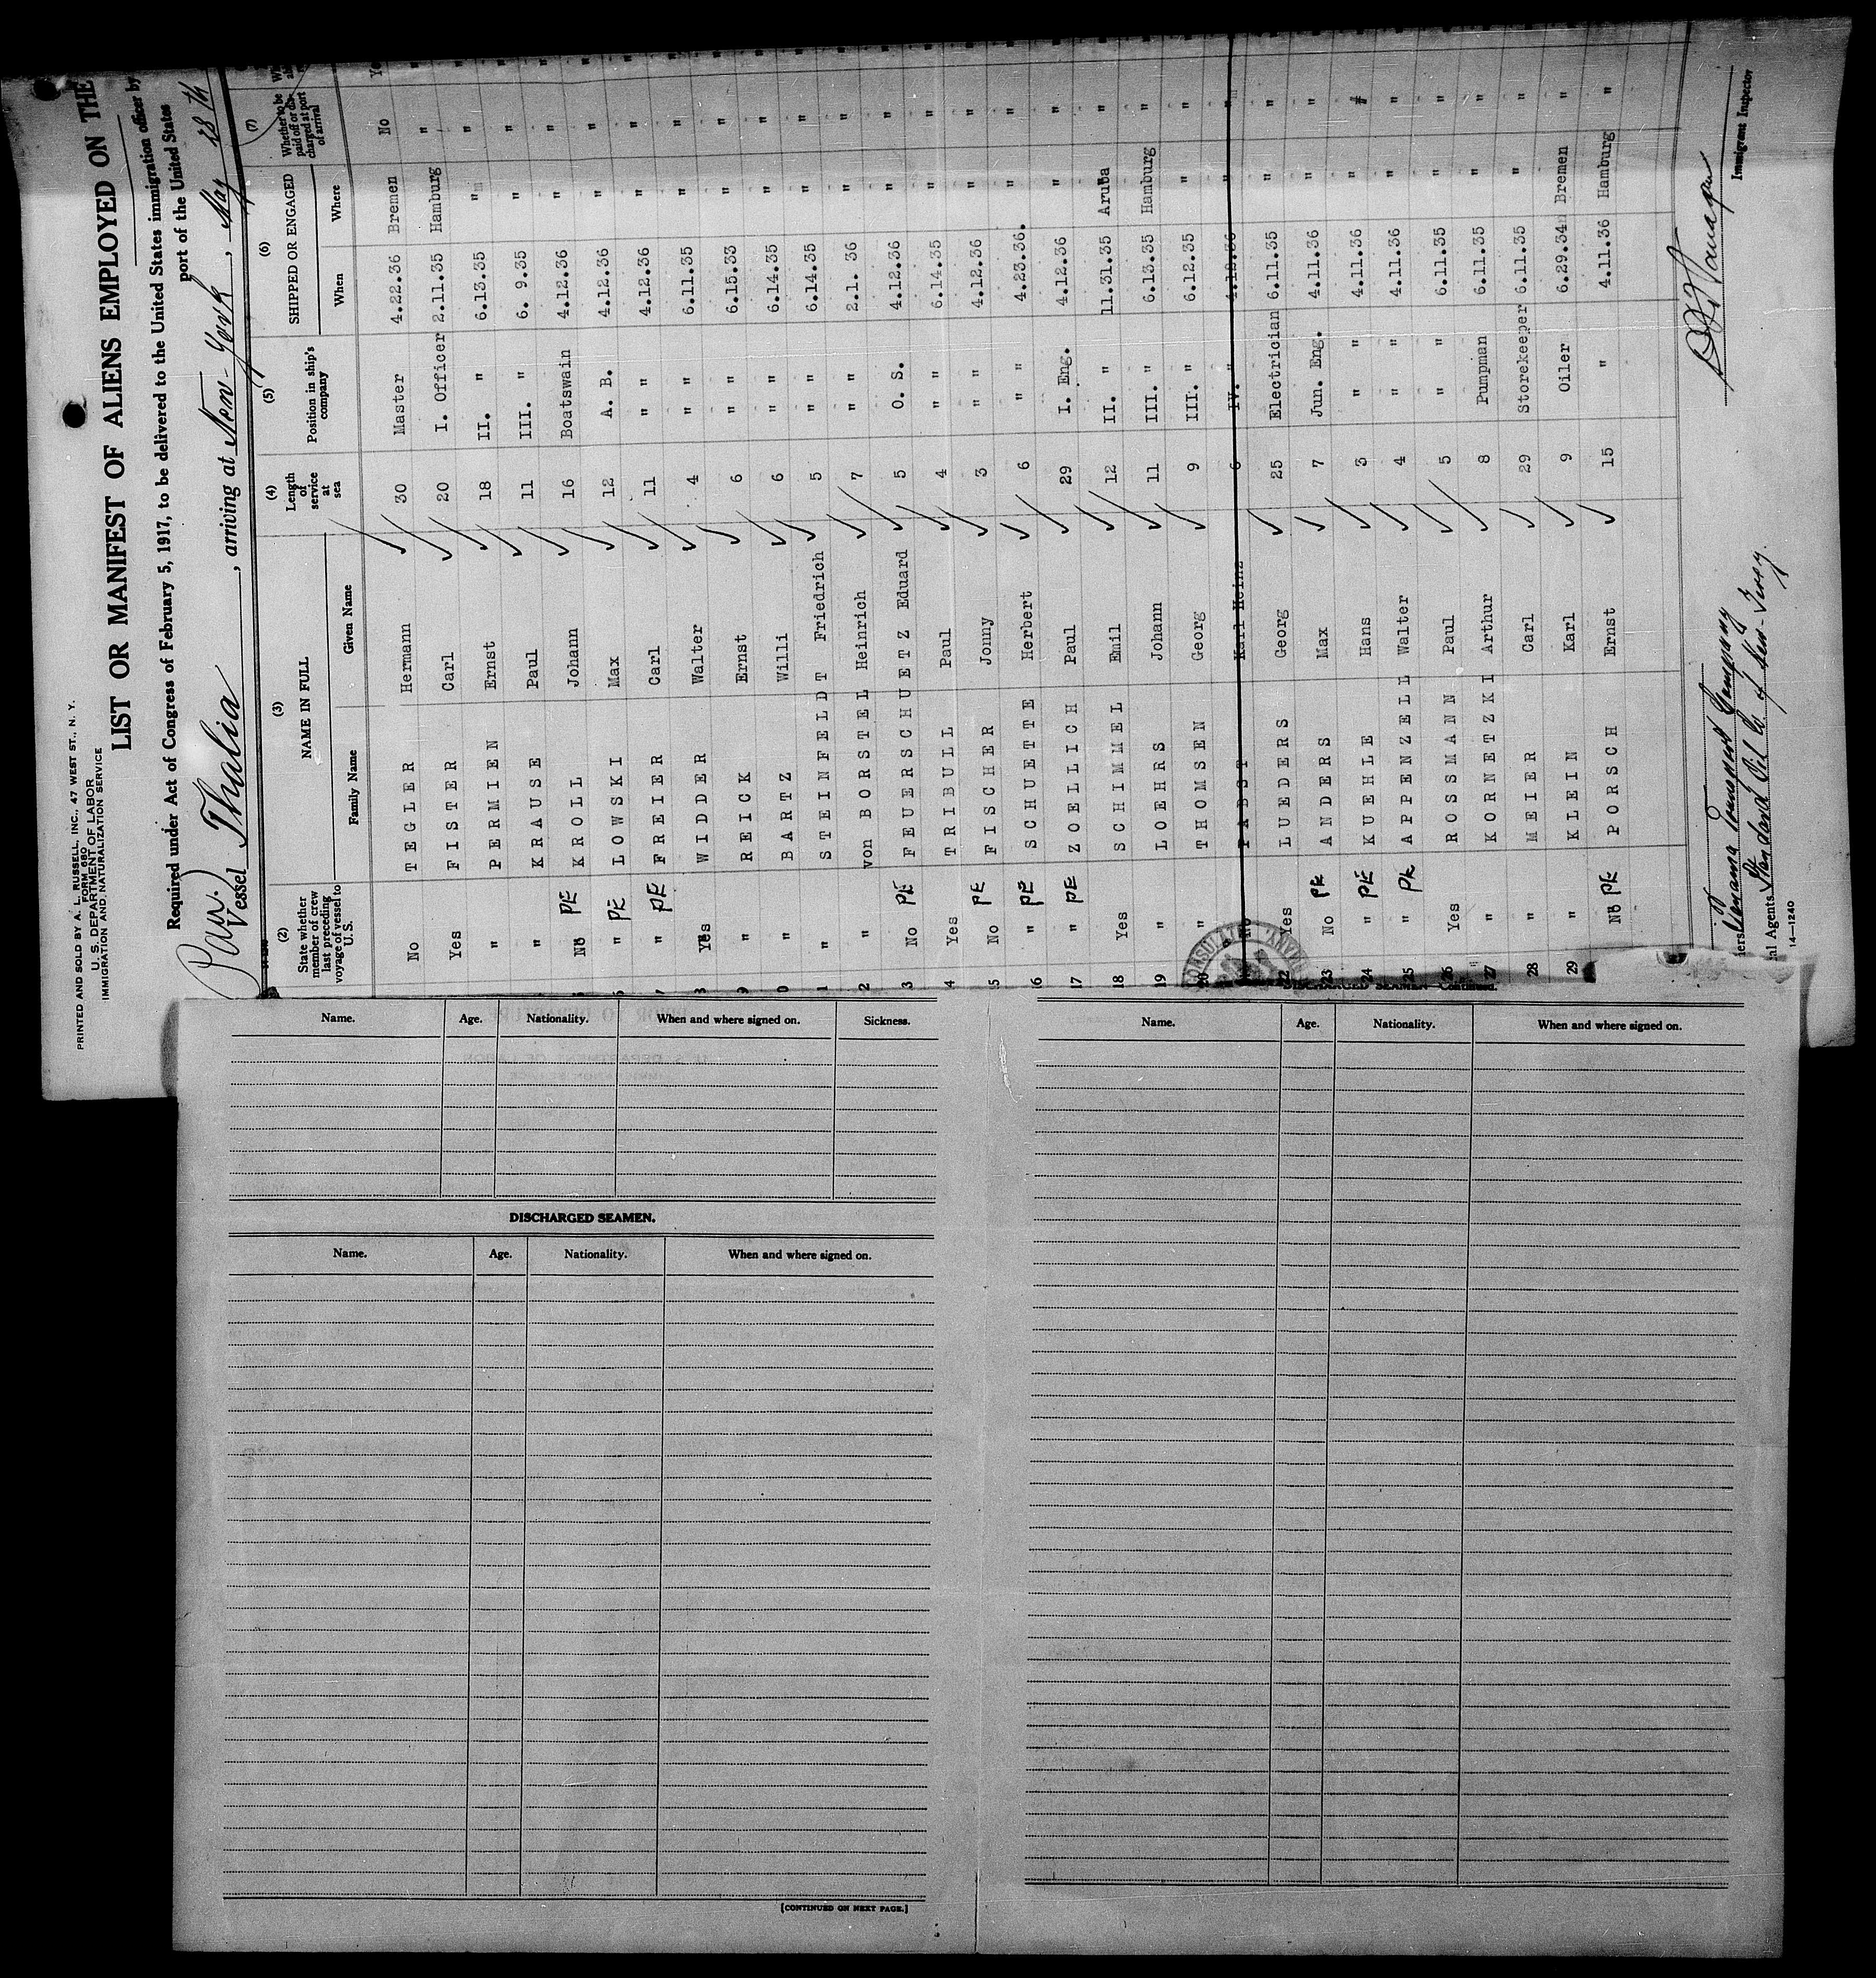 PRINTED AND SOLD BY A. L. RUSSELL, INC., 47 WEST ST., N. Y.
FORM 680
U. S. DEPARTMENT OF LABOR
IMMIGRATION AND NATURALIZATION SERVICE
LIST OR MANIFEST OF ALIENS EMPLOYED ON THE
Required under Act of Congress of February 5, 1917, to be delivered to the United States immigration officer by
port of the United States
Vessel Thalia, arriving at New-York, May 18 th
(2) (3) (4) (5) (6) (7)
State whether member of crew last preceding voyage of vessel to U.S.
NAME IN FULL
Family Name Given Name
Length of service at sea
Position in ship's company
SHIPPED OR ENGAGED
When Where
Whether to be paid off or discharged at port of arrival
No TEGLER Hermann 30 Master 4.22.36 Bremen No
Yes FISTER Carl 20 I. Officer 2.11.35 Hamburg "
" PERMIEN Ernst 18 II. " 6.13.35 " "
" KRAUSE Paul 11 III. " 6. 9.35 " "
No PE KROLL Johann 16 Boatswain 4.12.36 " "
" PE LOWSKI Max 12 A. B. 4.12.36 " "
" PE FREIER Carl 11 " " 4.12.36 " "
Yes WIDDER Walter 4 " " 6.11.35 " "
" REICK Ernst 6 " " 6.15.33 " "
" BARTZ Willi 6 " " 6.14.35 " "
" STEINFELDT Friedrich 5 " " 6.14.35 " "
" von BORSTEL Heinrich 7 " " 2.1. 36 " "
No PE FEUERSCHUETZ Eduard 5 O. S. 4.12.36 " "
Yes TRIBULL Paul 4 " " 6.14.35 " "
No PE FISCHER Jonny 3 " " 4.12.36 " "
" PE SCHUETTE Herbert 6 " " 4.23.36. " "
" PE ZOELLICH Paul 29 I. Eng. 4.12.36 " "
18 Yes SCHIMMEL Emil 12 II. " 11.31.35 Aruba "
19 " LOEHRS Johann 11 III. " 6.13.35 Hamburg "
20 " THOMSEN Georg 9 III. " 6.12.35 " "
No PABST Karl Heinz 6 IV. " 4.12.36 " "
22 Yes LUEDERS Georg 25 Electrician 6.11.35 " "
23 No PE ANDERS Max 7 Jun. Eng. 4.11.36 " "
24 " PE KUEHLE Hans 3 " " 4.11.36 " "
25 " PE APPENZELL Walter 4 " " 4.11.36 " "
26 Yes ROSSMANN Paul 5 " " 6.11.35 " "
27 " KORNETZKI Arthur 8 Pumpman 6.11.35 " "
28 " MEIER Carl 29 Storekeeper 6.11.35 " "
29 " KLEIN Karl 9 Oiler 6.29.34 Bremen "
No PE PORSCH Ernst 15 " 4.11.36 Hamburg "
Panama Transport Company
Standard Oil Co of New-Jersey.
Immigrant Inspector
14—1240
DISCHARGED SEAMEN—Continued.
Name. Age. Nationality. When and where signed on. Sickness.
DISCHARGED SEAMEN.
Name. Age. Nationality. When and where signed on.
[CONTINUED ON NEXT PAGE.]
Name. Age. Nationality. When and where signed on.